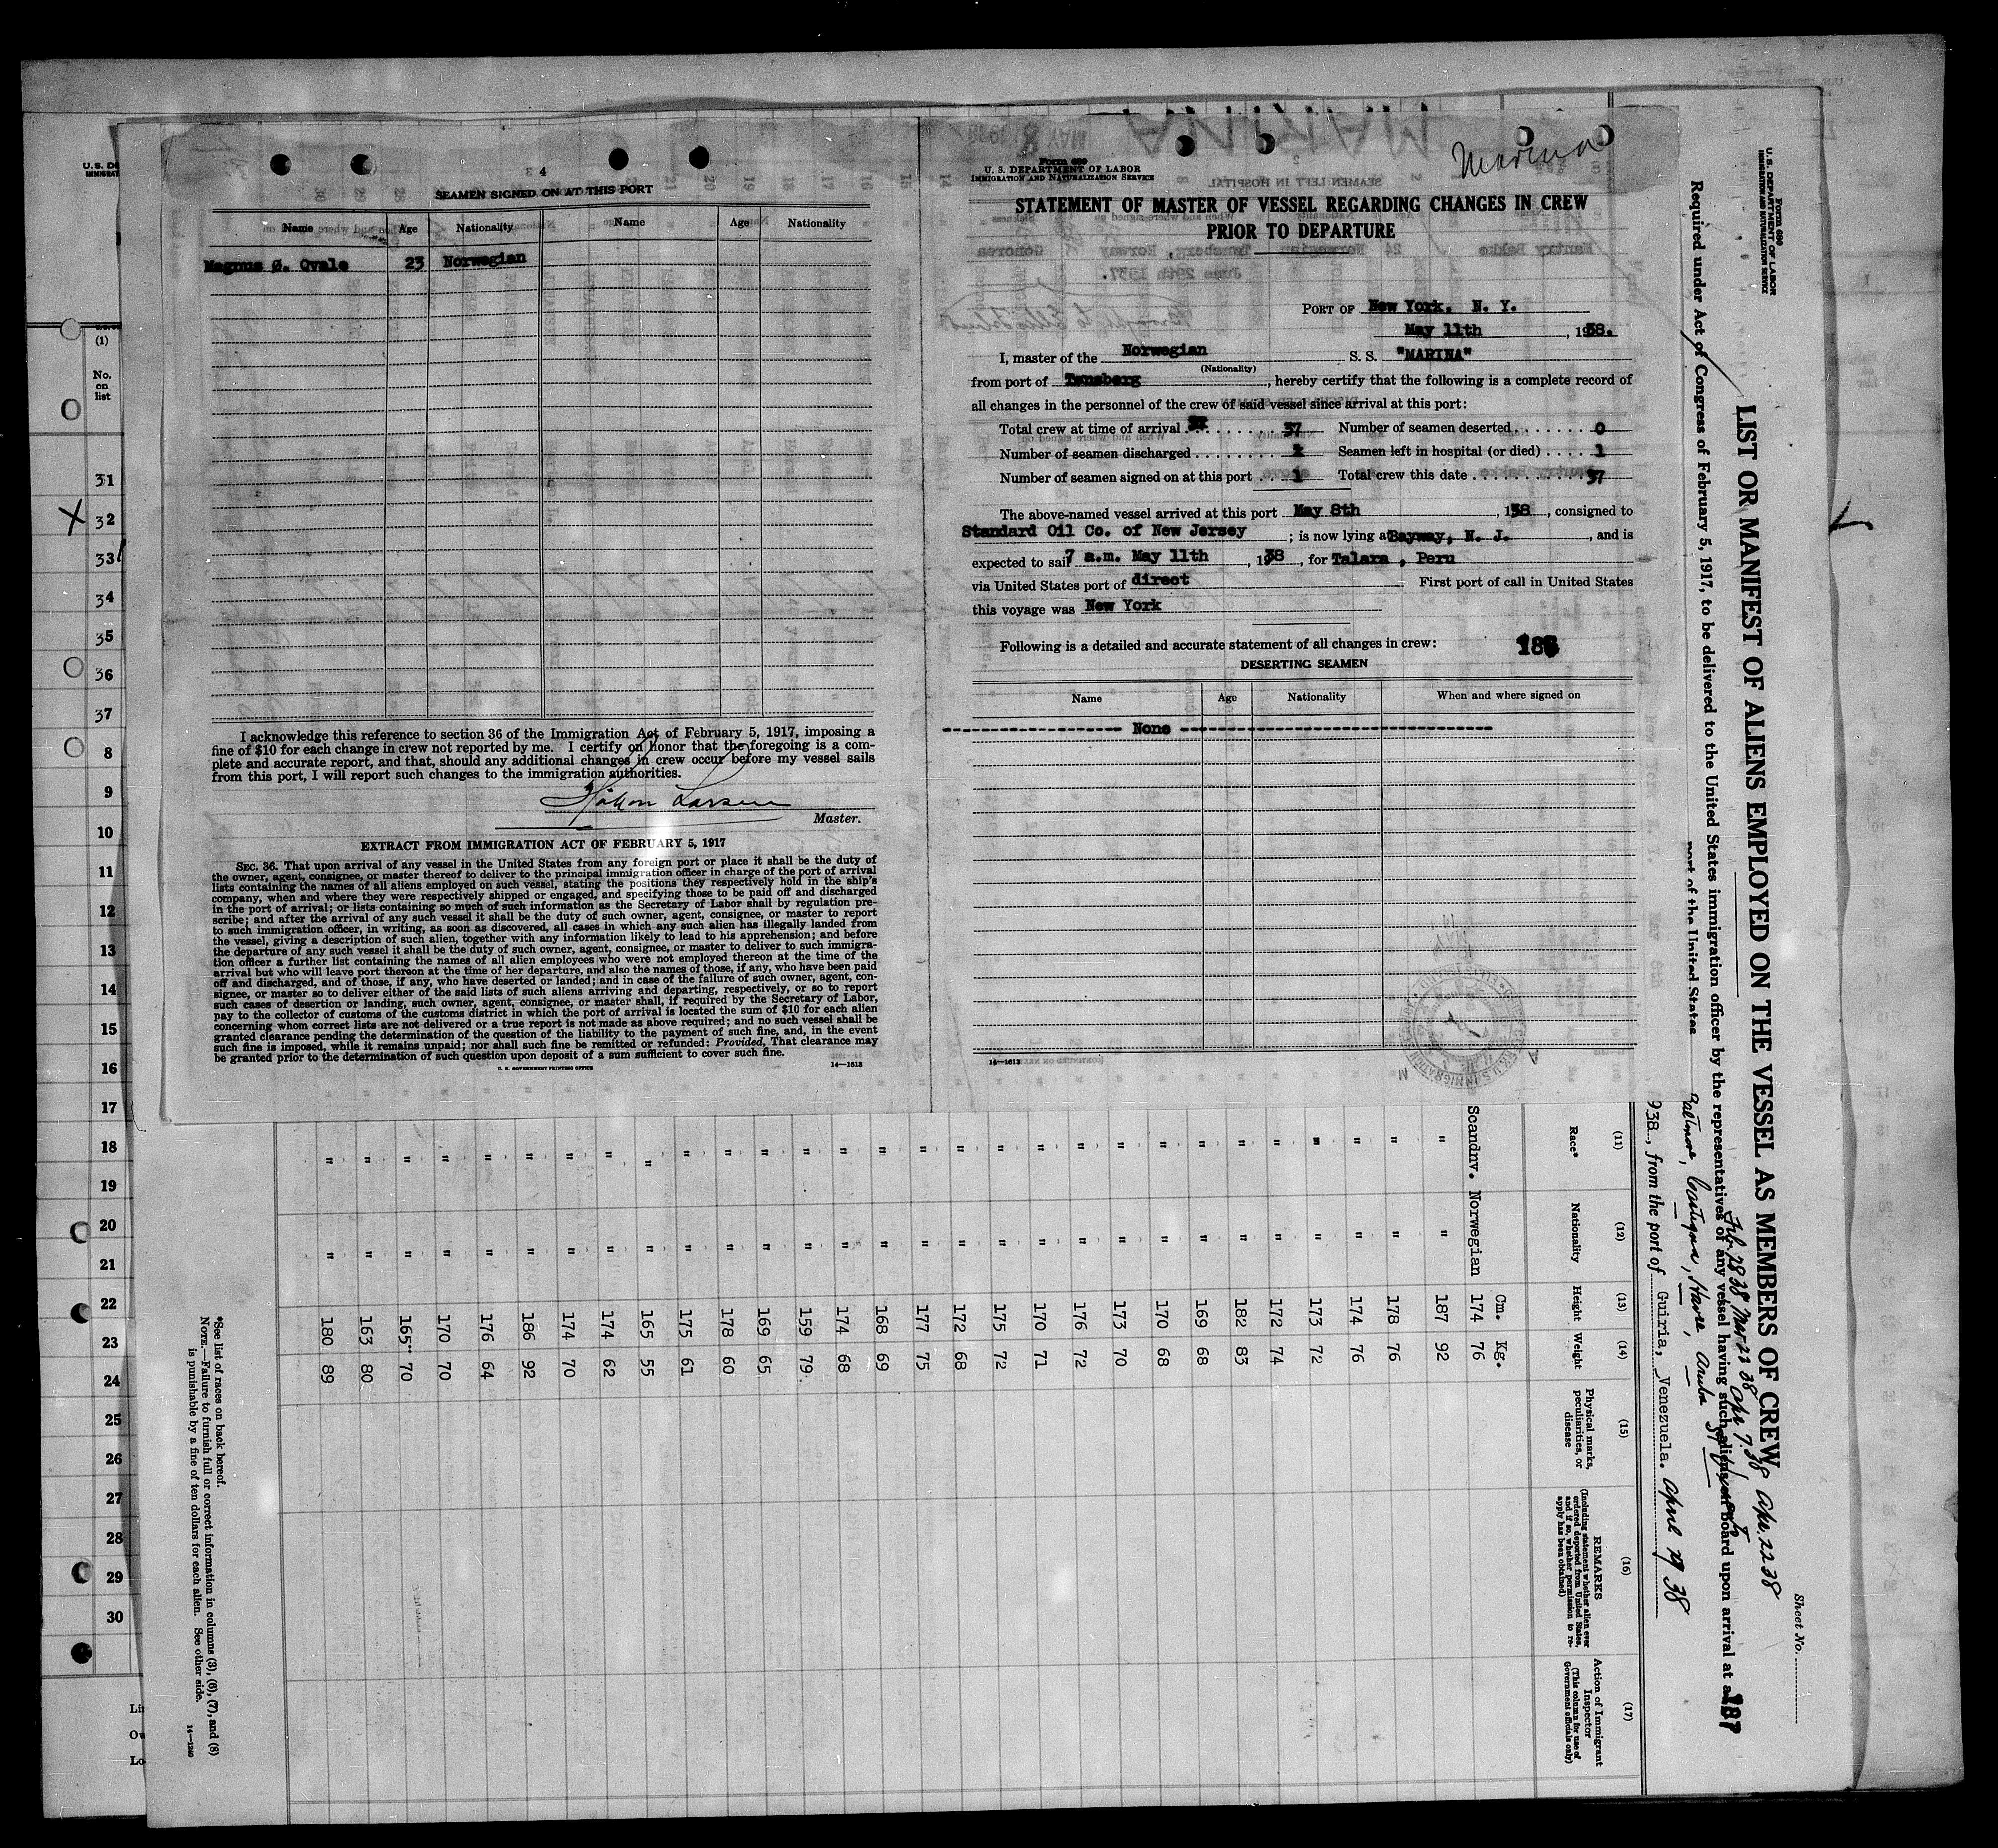 4
SEAMEN SIGNED ON AT THIS PORT
Name Age Nationality Name Age Nationality
Magnus Ø. Qvale 23 Norwegian
I acknowledge this reference to section 36 of the Immigration Act of February 5, 1917, imposing a
fine of $10 for each change in crew not reported by me. I certify on honor that the foregoing is a com-
plete and accurate report, and that, should any additional changes in crew occur before my vessel sails
from this port, I will report such changes to the immigration authorities.
Håkon Larsen
Master.
EXTRACT FROM IMMIGRATION ACT OF FEBRUARY 5, 1917
SEC. 36. That upon arrival of any vessel in the United States from any foreign port or place it shall be the duty of
the owner, agent, consignee, or master thereof to deliver to the principal immigration officer in charge of the port of arrival
lists containing the names of all aliens employed on such vessel, stating the positions they respectively hold in the ship's
company, when and where they were respectively shipped or engaged, and specifying those to be paid off and discharged
in the port of arrival; or lists containing so much of such information as the Secretary of Labor shall by regulation pre-
scribe; and after the arrival of any such vessel it shall be the duty of such owner, agent, consignee, or master to report
to such immigration officer, in writing, as soon as discovered, all cases in which any such alien has illegally landed from
the vessel, giving a description of such alien, together with any information likely to lead to his apprehension; and before
the departure of any such vessel it shall be the duty of such owner, agent, consignee, or master to deliver to such immigra-
tion officer a further list containing the names of all alien employees who were not employed thereon at the time of the
arrival but who will leave port thereon at the time of her departure, and also the names of those, if any, who have been paid
off and discharged, and of those, if any, who have deserted or landed; and in case of the failure of such owner, agent, con-
signee, or master so to deliver either of the said lists of such aliens arriving and departing, respectively, or so to report
such cases of desertion or landing, such owner, agent, consignee, or master shall, if required by the Secretary of Labor,
pay to the collector of customs of the customs district in which the port of arrival is located the sum of $10 for each alien
concerning whom correct lists are not delivered or a true report is not made as above required; and no such vessel shall be
granted clearance pending the determination of the question of the liability to the payment of such fine, and, in the event
such fine is imposed, while it remains unpaid; nor shall such fine be remitted or refunded: Provided, That clearance may
be granted prior to the determination of such question upon deposit of a sum sufficient to cover such fine.
U. S. GOVERNMENT PRINTING OFFICE 14—1613
Marina
Form 689
U. S. DEPARTMENT OF LABOR
IMMIGRATION AND NATURALIZATION SERVICE
STATEMENT OF MASTER OF VESSEL REGARDING CHANGES IN CREW
PRIOR TO DEPARTURE
PORT OF New York, N. Y.
May 11th, 1938.
I, master of the Norwegian S. S. "MARINA"
(Nationality)
from port of Tønsberg, hereby certify that the following is a complete record of
all changes in the personnel of the crew of said vessel since arrival at this port:
Total crew at time of arrival 37 Number of seamen deserted 0
Number of seamen discharged 2 Seamen left in hospital (or died) 1
Number of seamen signed on at this port 1 Total crew this date 37
The above-named vessel arrived at this port May 8th, 1938, consigned to
Standard Oil Co. of New Jersey; is now lying at Bayway, N. J., and is
expected to sail 7 a.m. May 11th, 1938, for Talara, Peru
via United States port of direct First port of call in United States
this voyage was New York
Following is a detailed and accurate statement of all changes in crew:
DESERTING SEAMEN
Name Age Nationality When and where signed on
None
14—1613
Form 680
U. S. DEPARTMENT OF LABOR
IMMIGRATION AND NATURALIZATION SERVICE
Sheet No.
LIST OR MANIFEST OF ALIENS EMPLOYED ON THE VESSEL AS MEMBERS OF CREW
Required under Act of Congress of February 5, 1917, to be delivered to the United States immigration officer by the representatives of any vessel having such aliens on board upon arrival at a
port of the United States
187
938, from the port of Guiria, Venezuela. April 29 38
(11) (12) (13) (14) (15) (16) (17)
Race* Nationality Height Weight Physical marks, peculiarities, or disease REMARKS (Including statement whether alien ever ordered deported from United States, and if so, whether permission to re-apply has been obtained) Action of Immigrant Inspector (This column for use of Government officials only)
Cm. Kg.
Scandnv. Norwegian 174 76
" " 187 92
" " 178 76
" " 174 76
" " 173 72
" " 172 74
" " 182 83
" " 169 68
" " 170 68
" " 173 70
" " 176 72
" " 170 71
" " 175 72
" " 172 68
" " 177 75
" " 168 69
" " 174 68
" " 159 79
" " 169 65
" " 178 60
" " 175 61
" " 165 55
" " 174 62
" " 174 70
" " 186 92
" " 176 64
" " 170 70
" " 165 70
" " 163 80
" " 180 89
*See list of races on back hereof.
NOTE.—Failure to furnish full or correct information in columns (3), (6), (7), and (8)
is punishable by a fine of ten dollars for each alien. See other side.
14—1240
(1)
No.
on
list
31
32
33
34
35
36
37
8
9
10
11
12
13
14
15
16
17
18
19
20
21
22
23
24
25
26
27
28
29
30